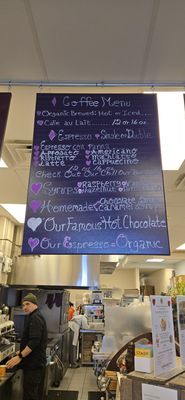 Coffee Menu
Organic Brewed: Hot or Iced....
Cafe au Lait....... 12 or 16 oz
Espresso - Single or Double
Espresso con panna
Amaretto Americano
Ristretto Macchiato
Latte Cappuccino
Check Out Our Chill Our
Syrups Raspberry
Hazelnut
Homemade Chocolate
Caramel
Our Famous "Hot Chocolate
Our Espresso is Organic